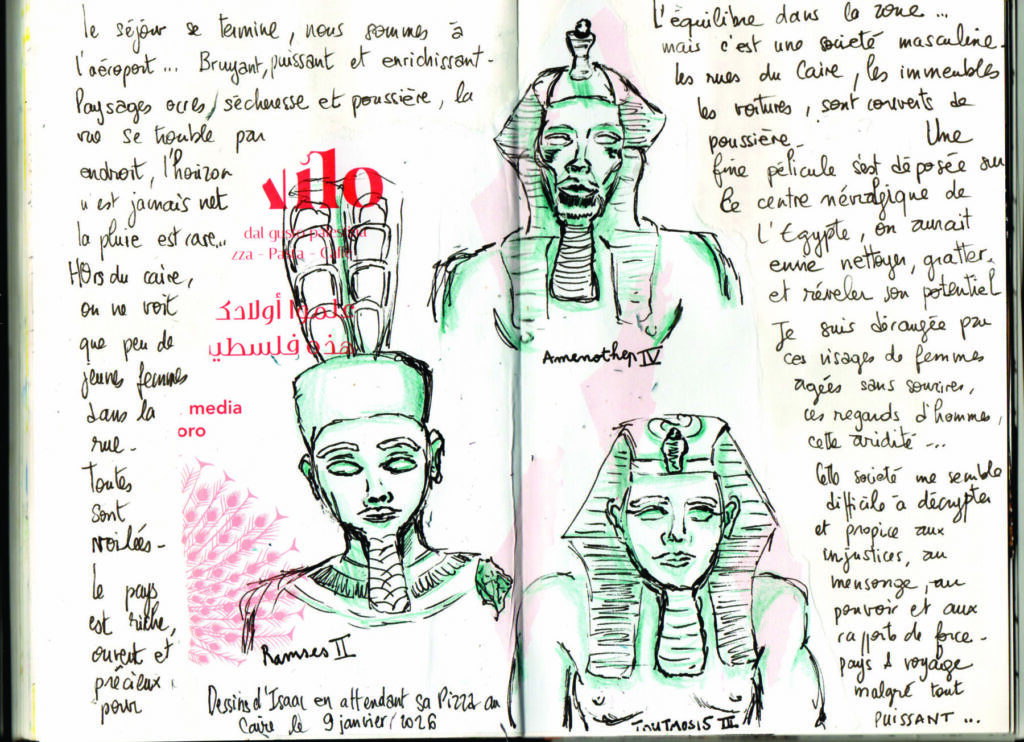 le séjour se termine, nous sommes à
l'aéroport... Bruyant, puissant et enrichissant -
Paysages ocres, sécheresse et poussière, la
vue se trouble par
endroit, l'horizon
n'est jamais net
la pluie est rare...
HOrs du caire,
on ne voit
que peu de
jeunes femmes
dans la
rue -
toutes
sont
voilées -
le pays
est riche,
ouvert et
précieux
pour
vilo
dal gusto palestin
zza - Pasta - Caffè
علموا أولادك
هذه فلسطي
media
oro
Ramses II
Dessins d'Isaac en attendant sa Pizza au
Caire le 9 janvier/2026
L'équilibre dans la zone...
mais c'est une societé masculine -
les rues du Caire, les immeubles
les voitures, sont couverts de
poussière - Une
fine pélicule s'est déposée sur
le centre névralgique de
L'Egypte, on aurait
envie nettoyer, gratter
et réveler son potentiel
Je suis dérangée par
ces visages de femmes
agées sans sourires,
ces regards d'hommes,
cette aridité -...
Cette societé me semble
difficile à décrypter
et propice aux
injustices, au
mensonge, au
pouvoir et aux
rapports de force -
pays & voyage
malgré tout
PUISSANT...
Amenothep IV
TOUTMOSIS III